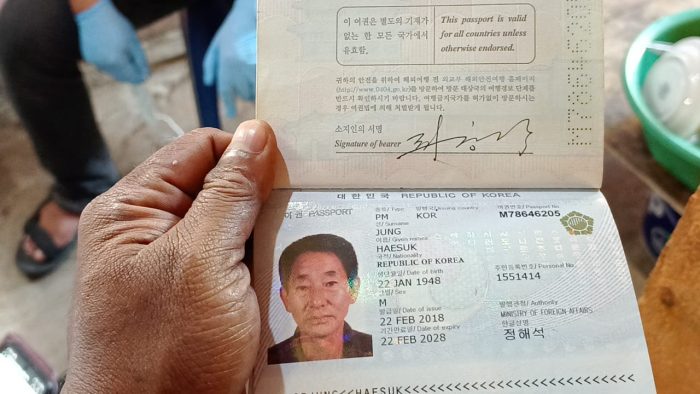 이 여권은 별도의 기재가
없는 한 모든 국가에서
유효함.
This passport is valid
for all countries unless
otherwise endorsed.
귀하의 안전을 위하여 해외여행 전 외교부 해외안전여행 홈페이지
(http://www.0404.go.kr)를 방문하여 방문 대상국의 여행경보 단계를
반드시 확인하시기 바랍니다. 여행금지국가를 허가없이 방문하시는
경우 여권법에 의해 처벌받게 됩니다.
소지인의 서명
Signature of bearer
대한민국 REPUBLIC OF KOREA
여권 PASSPORT
종류/ Type 발행국/ Issuing country 여권번호/ Passport No
PM KOR M78646205
성/ Surname
JUNG
이름/ Given names
HAESUK
국적/ Nationality
REPUBLIC OF KOREA
생년월일/ Date of birth 주민등록번호/ Personal No
22 JAN 1948 1551414
성별/ Sex
M
발급일/ Date of issue 발행관청/ Authority
22 FEB 2018 MINISTRY OF FOREIGN AFFAIRS
기간만료일/ Date of expiry 한글성명
22 FEB 2028 정해석
JUNG<<HAESUK<<<<<<<<<<<<<<<<<<<<<<<<